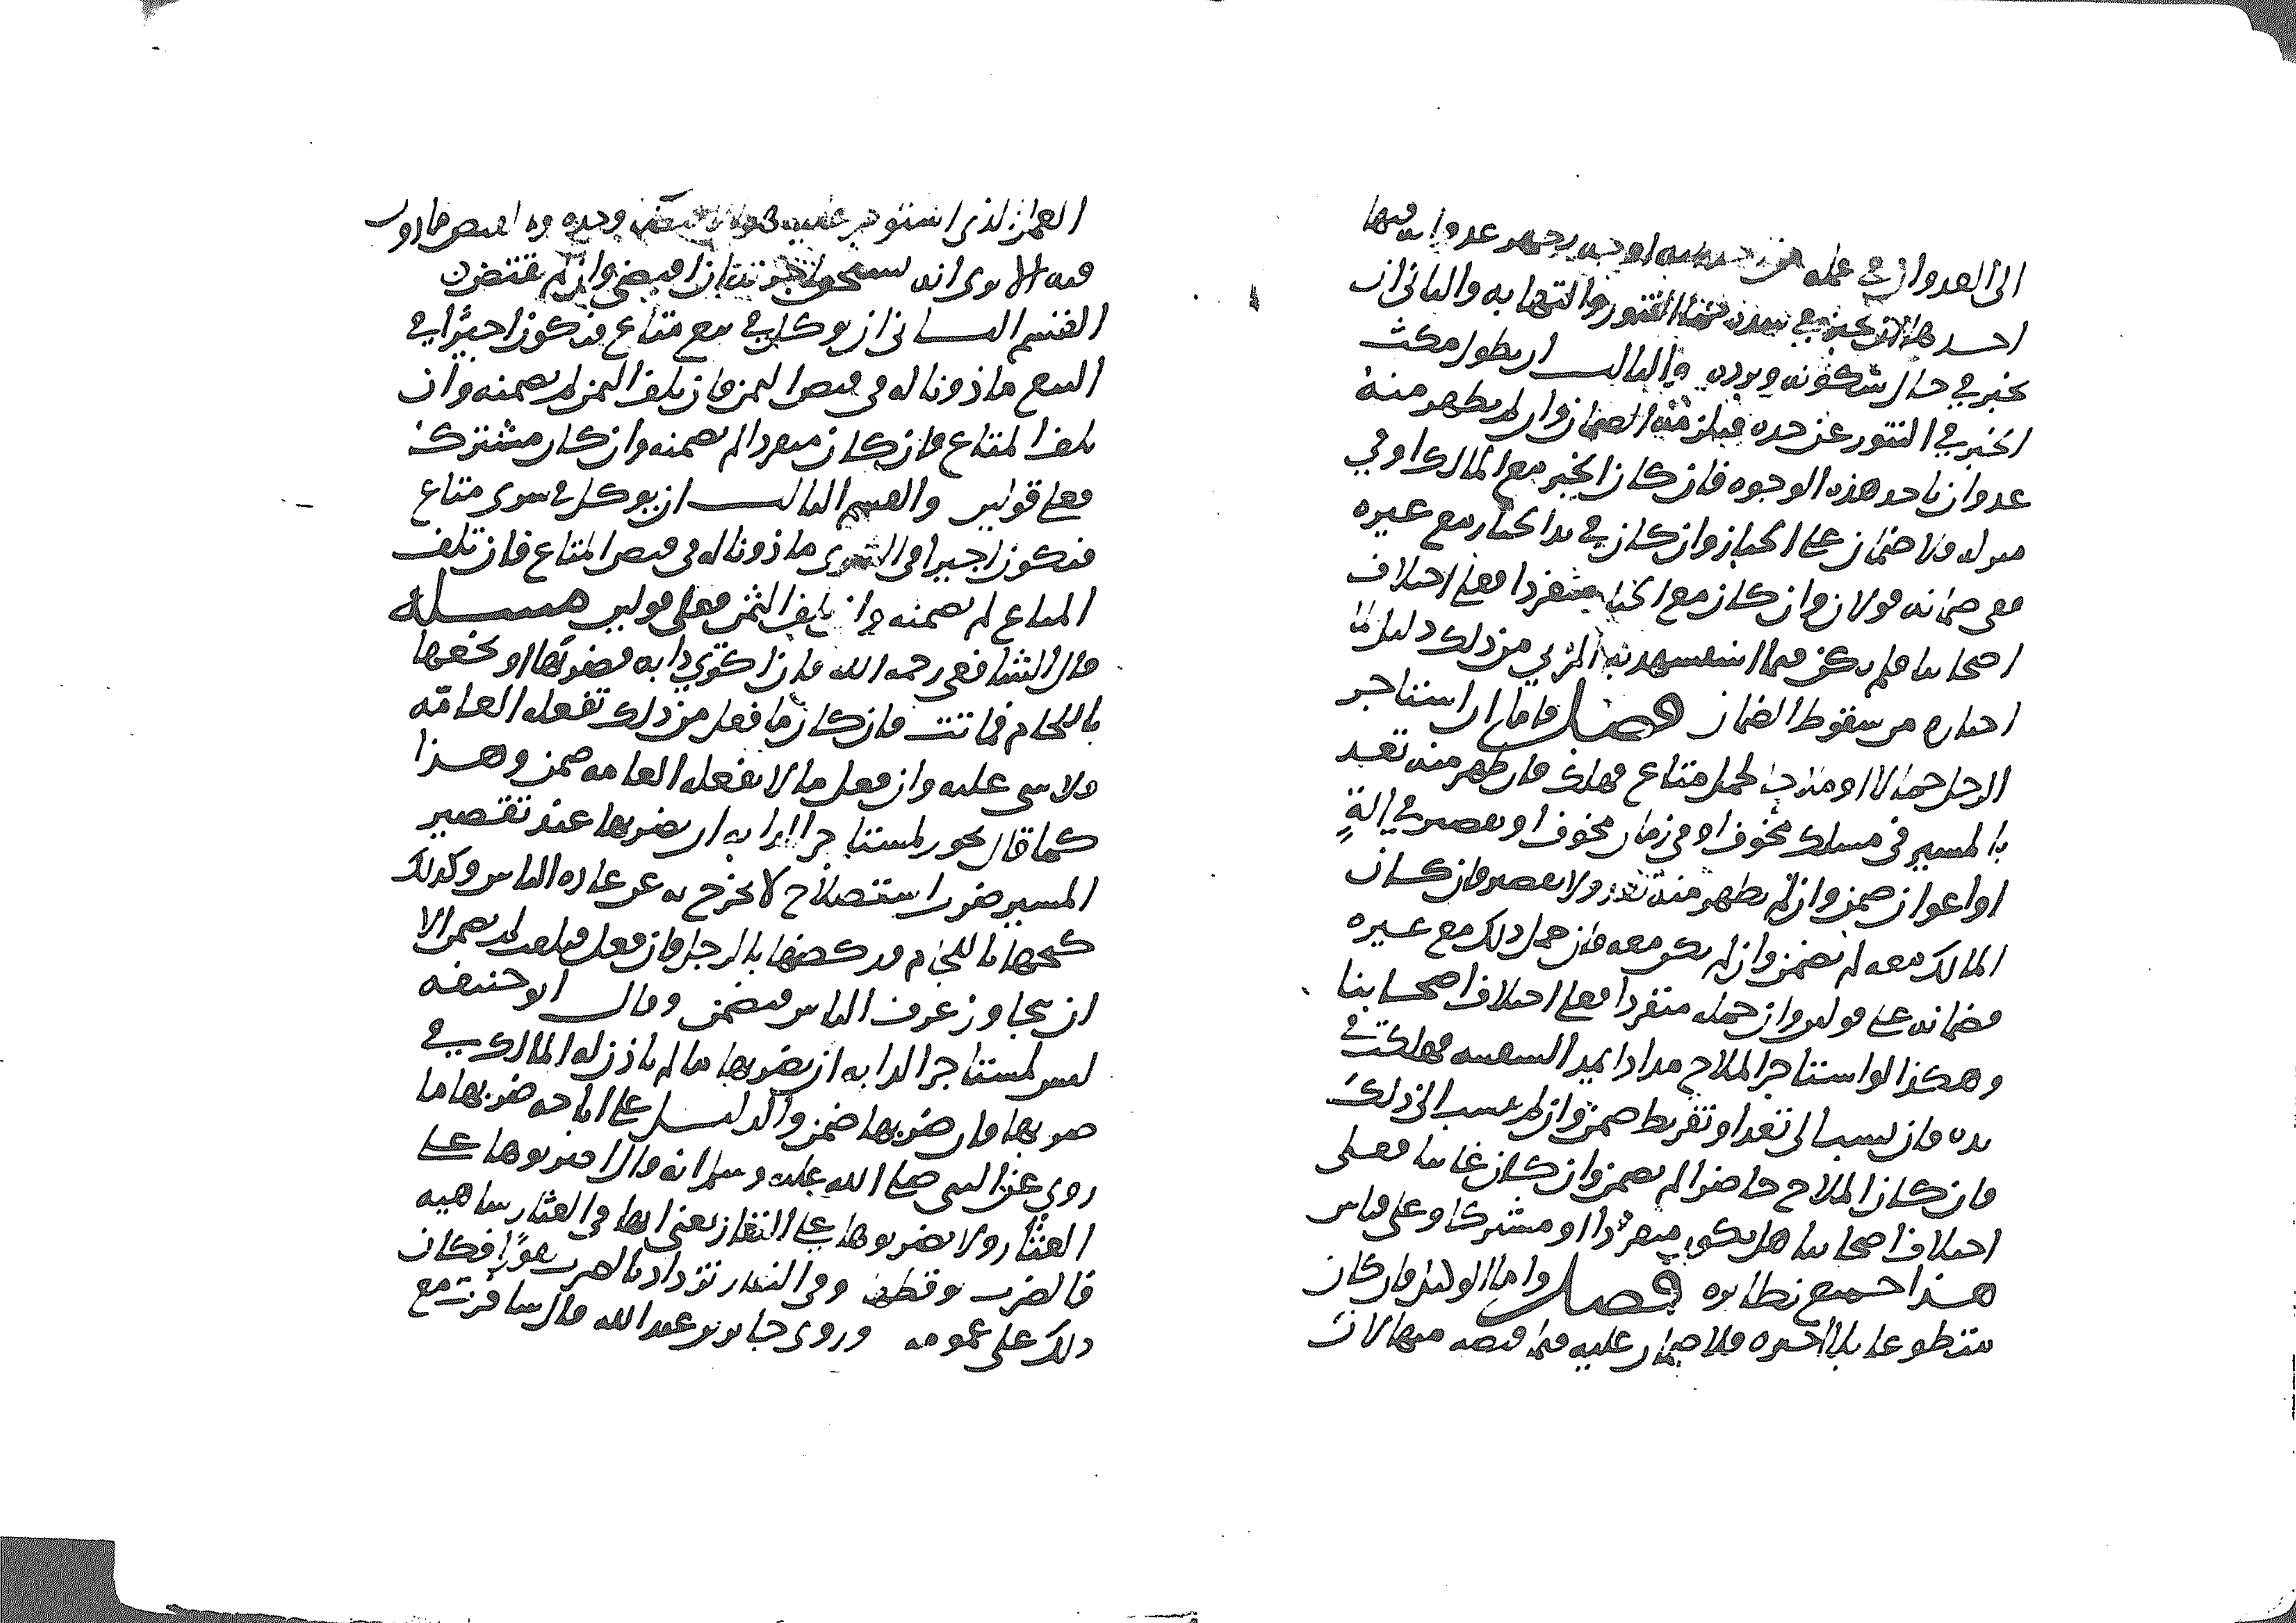 الى العدوان في عمله من احد ثلاثة اوجه يظهر عدوانه فيها
احدها ان يخبز في شدة حما التنور والتهابه والثاني ان
يخبز في حال سكونه وبرده والثالث ان يطول مكث
الخبز في التنور عن حده فيلزمه الضمان وان لم يظهر منه
عدوان باحد هذه الوجوه فان كان الخبز مع المالك او في
منزله فلا ضمان على الخباز وان كان في يد الخباز مع غيره
ففي ضمانه قولان وان كان مع الخباز منفردا فعلى اختلاف
اصحابنا فلم يكن فيما استشهد به المزني من ذلك دليل لما
اختاره من سقوط الضمان فصل فاما ان استاجر
الرجل حمالا او ملاحا لحمل متاع فهلك فان ظهر منه تعد
بالمسير في مسلك مخوف او في زمان مخوف او تقصير في الة
او اعوان ضمن وان لم يظهر منه تعد ولا تقصير فان كان
المالك معه لم يضمن وان لم يكن معه فان حمل ذلك مع غيره
فضمانه على قولين وان حمله منفردا فعلى اختلاف اصحابنا
وهكذا لو استاجر الملاح مدادا لمد السفينة فهلكت في
يده فان نسب الى تعد او تفريط ضمن وان لم ينسب الى ذلك
فان كان الملاح حاضرا لم يضمن وان كان غائبا فعلى
اختلاف اصحابنا هل يكون منفردا او مشتركا وعلى قياس
هذا جميع نظائره فصل واما الوكيل فان كان
متطوعا بلا اجرة فلا ضمان عليه فيما قبضه منها لان
العمل الذي استوجر عليه وحده وما قبض ماذون
فيه الا ترى انه يستحق اجرته اذا قبض وان لم يقتض
القسم الثاني ان يوكل في بيع متاع فيكون اجيرا في
البيع ماذونا له في قبض الثمن فان تلف الثمن لم يضمنه وان
تلف المتاع فان كان منفردا لم يضمنه وان كان مشترك
فعلى قولين والقسم الثالث ان يوكل في شرى متاع
فيكون اجيرا في الشرى ماذونا له في قبض المتاع فان تلف
المتاع لم يضمنه وان تلف الثمن فعلى قولين مسلة
قال الشافعي رحمه الله فان اكترى دابة فضربها او كبحها
باللجام فماتت فان كان ما فعل من ذلك تفعله العامة
فلا شي عليه وان فعل ما لا يفعل العامة ضمن وهذا
كما قال يجوز لمستاجر الدابة ان يضربها عند تقصير
المسير ضرب استصلاح لا يخرج به عن عادة الناس وكذلك
كبحها باللجام وركضها بالرجل فان فعل فتلفت لم يضمن الا
ان يتجاوز عرف الناس فيضمن وقال ابو حنيفة
ليس لمستاجر الدابة ان يضربها ما لم ياذن له المالك في
ضربها فان ضربها ضمن والدليل على اباحة ضربها ما
روي عن النبي صلى الله عليه وسلم انه قال اضربوها على
العثار ولا تضربوها على النفار يعني انها في العثار ساهية
فالضرب يوقظها وفي النفار تزداد بالضرب نفورا فكان
ذلك على عمومه وروى جابر بن عبد الله قال سافرت مع